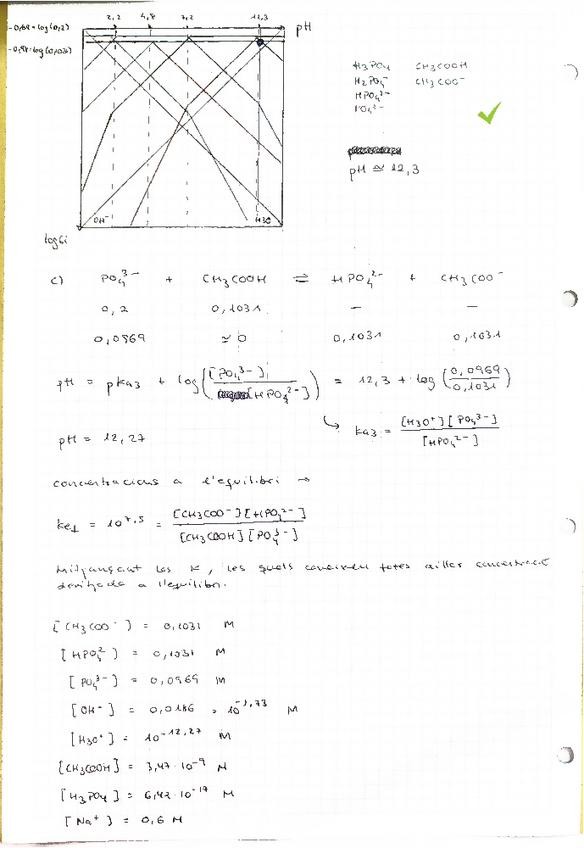 -0,69=log(0,2)
2,2 4,8 7,2 12,3 pH
-0,98=log(0,1031)
H3PO4 CH3COOH
H2PO4- CH3COO-
HPO4 2-
PO4 3-
pH ≃ 12,3
OH- H3O
logCi
c) PO4 3- + CH3COOH ⇌ HPO4 2- + CH3COO-
0,2 0,1031 - -
0,0969 ≃ 0 0,1031 0,1031
pH = pKa3 + log([PO4 3-]/[HPO4 2-]) = 12,3 + log(0,0969/0,1031)
↳ Ka3 = [H3O+][PO4 3-]/[HPO4 2-]
pH = 12,27
concentracions a l'equilibri →
Ke1 = 10^7,5 = [CH3COO-][HPO4 2-]/[CH3COOH][PO4 3-]
Mitjançant les K, les quals coneixem totes concentració
desitjada a l'equilibri.
[CH3COO-] = 0,1031 M
[HPO4 2-] = 0,1031 M
[PO4 3-] = 0,0969 M
[OH-] = 0,0186 = 10^-1,73 M
[H3O+] = 10^-12,27 M
[CH3COOH] = 3,47·10^-9 M
[H3PO4] = 6,42·10^-19 M
[Na+] = 0,6 M